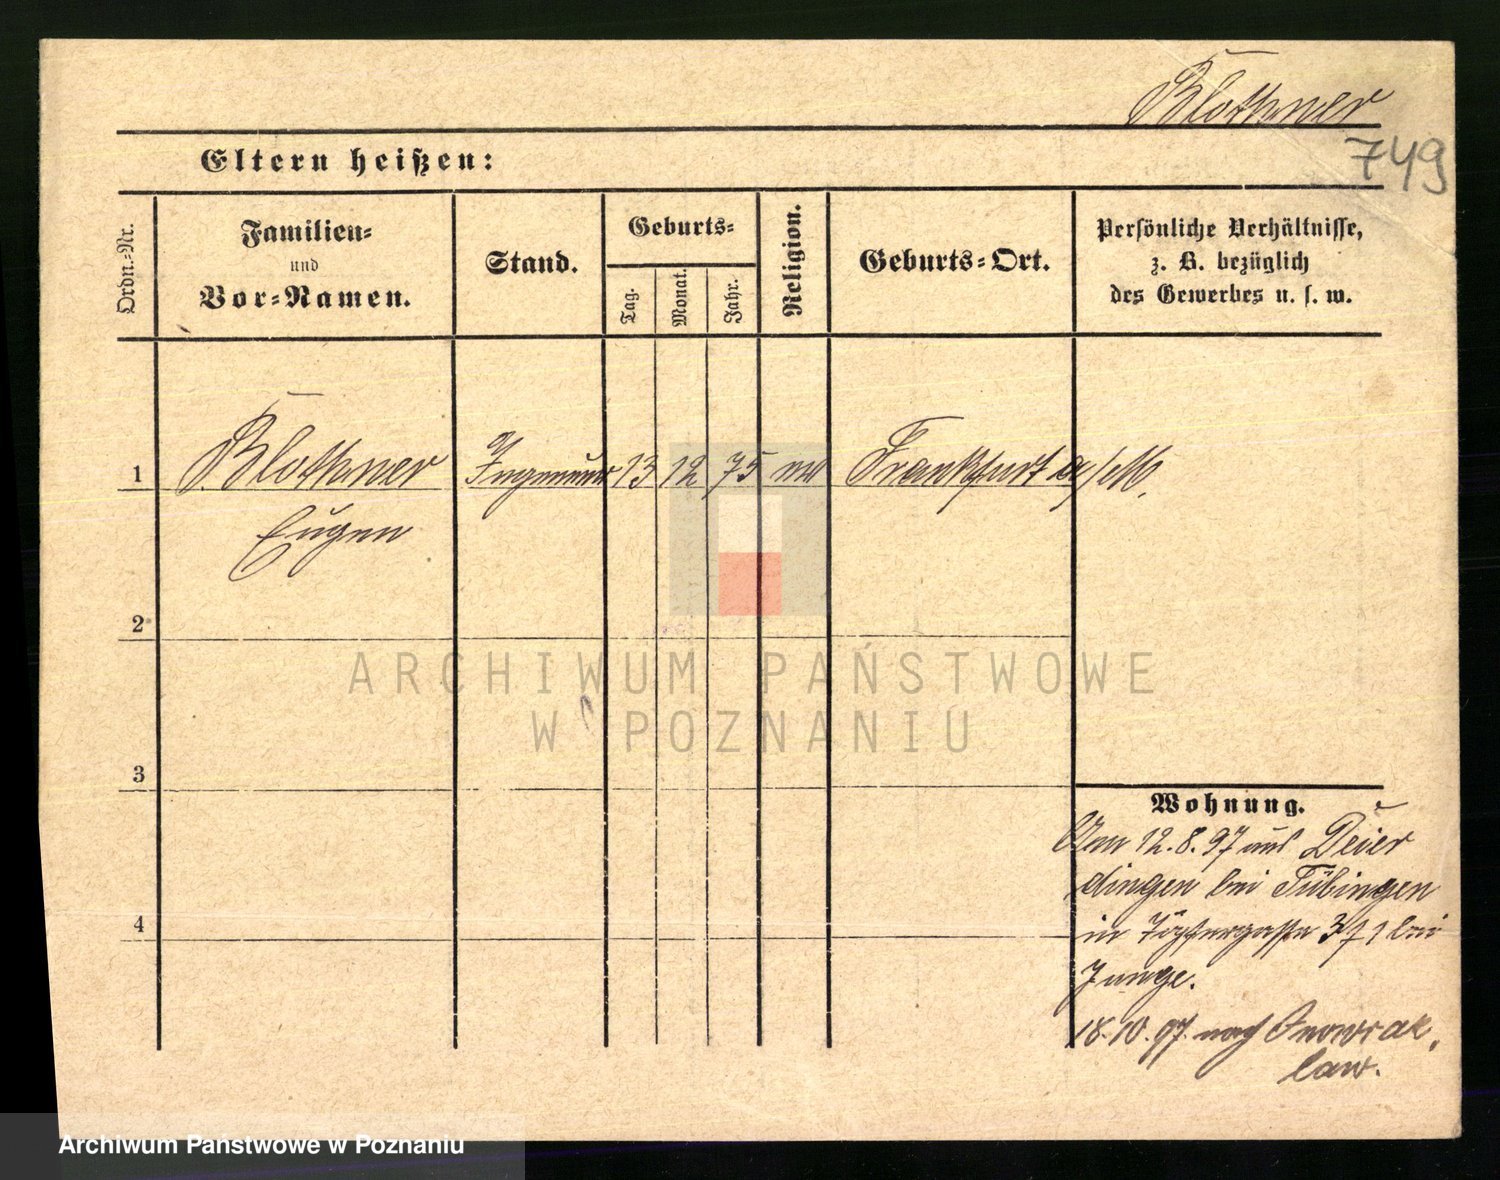 Blothner
749
Eltern heißen:
Ordn.-Nr.
Familien-
und
Vor-Namen.
Stand.
Geburts-
Tag.
Monat.
Jahr.
Religion.
Geburts-Ort.
Persönliche Verhältnisse,
z. B. bezüglich
des Gewerbes u. s. w.
1
Blothner
Ingenieur
13
12
75
Frankfurt a/M.
Eugen
2
3
4
Wohnung.
12.8.97 aus Deier
dingen bei Tübingen
in Töpfergasse 3 bei
Junge.
18.10.97 nach Inowrak
law.
ARCHIWUM PAŃSTWOWE
W POZNANIU
Archiwum Państwowe w Poznaniu